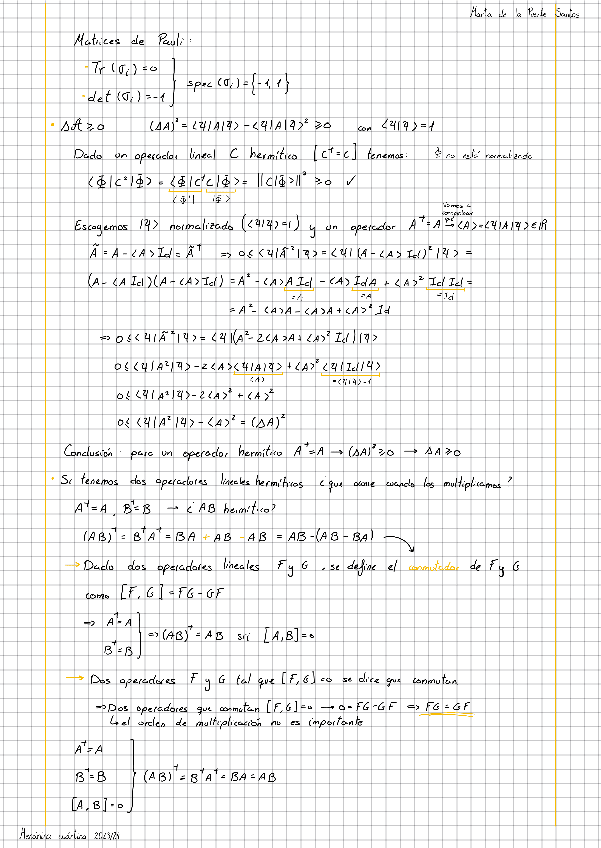 Marta de la Puente Santos
Matrices de Pauli:
· Tr(σᵢ)=0
· det(σᵢ)=-1
spec(σᵢ)={-1,1}
· ΔA≥0 (ΔA)²=<ψ|A²|ψ>-<ψ|A|ψ>²≥0 con <ψ|ψ>=1
Dado un operador lineal C hermítico [C†=C] tenemos: Φ no está normalizado
<Φ|C²|Φ> = <Φ|C†C|Φ> = ||C|Φ>||² ≥0 ✓
<Φ'| |Φ'>
Escogemos |ψ> normalizado (<ψ|ψ>=1) y un operador A†=A → <A>=<ψ|A|ψ>∈ℝ
vamos a comprobar que
Ã=A-<A>Id=Æ ⇒ 0≤<ψ|òψ>=<ψ|(A-<A>Id)²|ψ> =
(A-<A>Id)(A-<A>Id) = A²-<A>A Id-<A>Id A+<A>² Id Id =
=A =A =Id
= A²-<A>A-<A>A+<A>² Id
⇒ 0≤<ψ|òψ>=<ψ|(A²-2<A>A+<A>² Id)|ψ>
0≤<ψ|A²|ψ>-2<A><ψ|A|ψ>+<A>²<ψ|Id|ψ>
<A> =<ψ|ψ>=1
0≤<ψ|A²|ψ>-2<A>²+<A>²
0≤<ψ|A²|ψ>-<A>²=(ΔA)²
Conclusión: para un operador hermítico A†=A → (ΔA)²≥0 → ΔA≥0
· Si tenemos dos operadores lineales hermíticos ¿que ocurre cuando los multiplicamos?
A†=A, B†=B → ¿AB hermítico?
(AB)†=B†A†=BA+AB-AB=AB-(AB-BA)
→ Dado dos operadores lineales F y G, se define el conmutador de F y G
como [F,G]=FG-GF
⇒ A†=A
B†=B
⇒(AB)†=AB sii [A,B]=0
→ Dos operadores F y G tal que [F,G]=0 se dice que conmutan
⇒Dos operadores que conmutan [F,G]=0 → 0=FG-GF ⇒ FG=GF
↳el orden de multiplicación no es importante
A†=A
B†=B
[A,B]=0
(AB)†=B†A†=BA=AB
Mecánica cuántica 2023/24